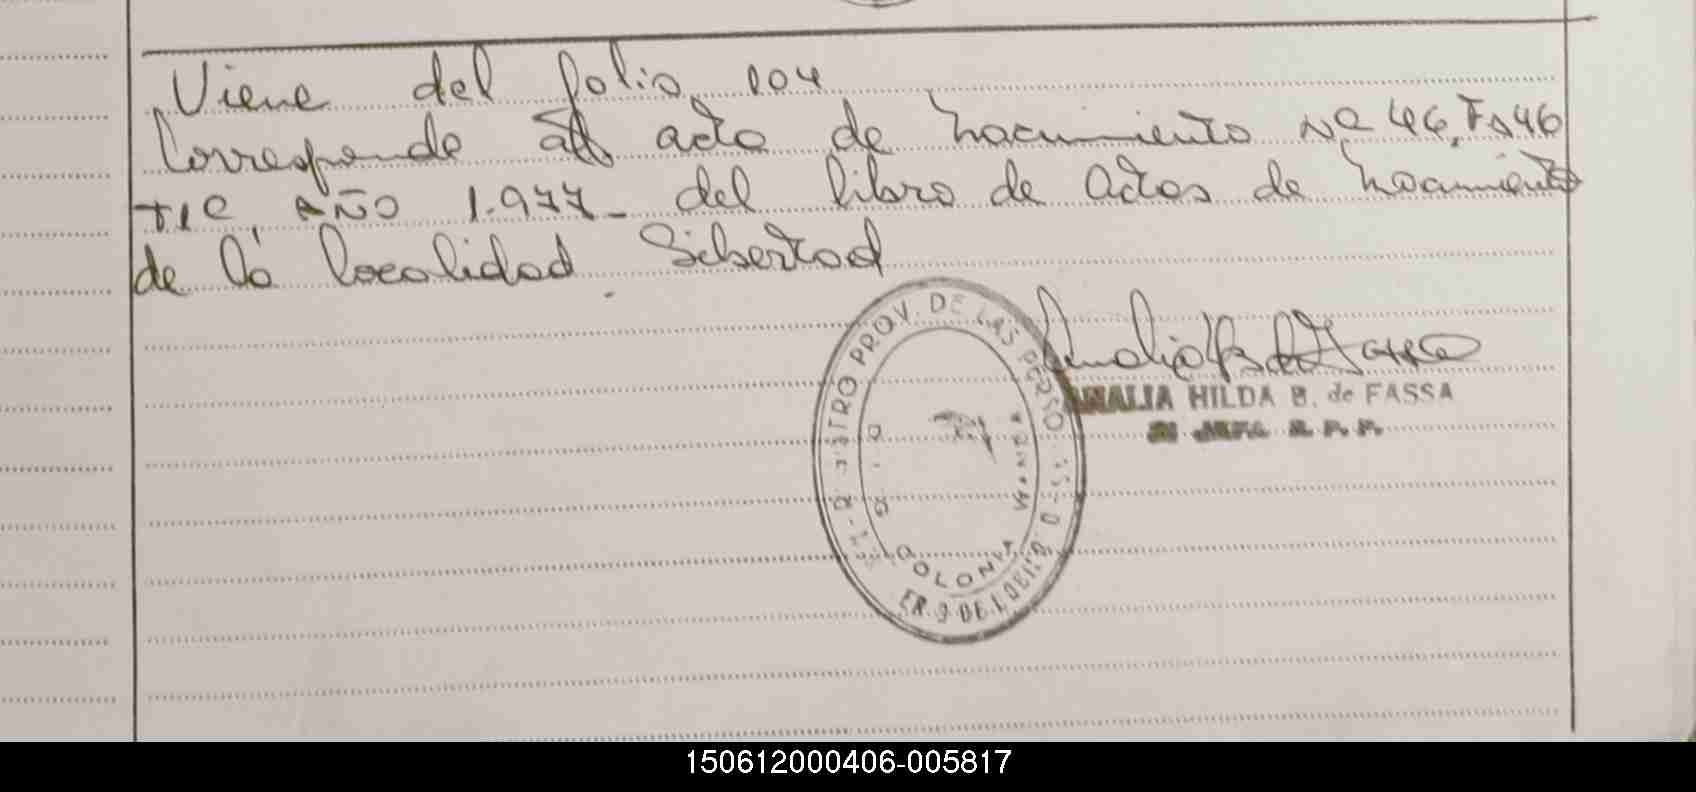 Viene del folio 104
Corresponde al acta de nacimiento Nº 46, Fs 46
Tiº AÑO 1.977- del libro de actas de nacimiento
de la localidad Libertad
REGISTRO PROV. DE LAS PERSO
COLONIA
ANALIA HILDA B. de FASSA
150612000406-005817